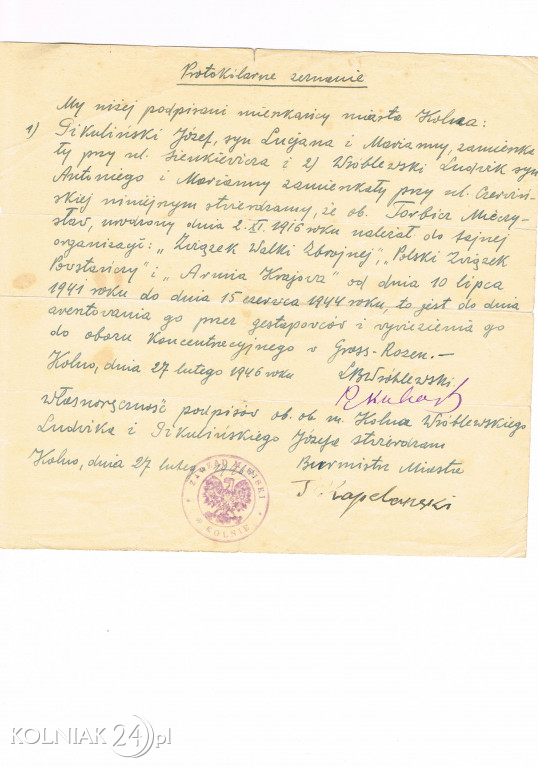 Protokólarne zeznanie
My niżej podpisani mieszkańcy miasta Kolna:
1) Pikuliński Józef, syn Lucjana i Marianny, zamieszka
ły przy ul. Sienkiewicza i 2) Wróblewski Ludwik syn
Antoniego i Marianny zamieszkały przy ul. Czerwiń-
skiej niniejszym stwierdzamy, że ob. Torbicz Mieczy-
sław, urodzony dnia 2.XI.1916 roku należał do tajnej
organizacji: „Związek Walki Zbrojnej", „Polski Związek
Powstańczy" i „Armia Krajowa" od dnia 10 lipca
1941 roku do dnia 15 czerwca 1944 roku, to jest do dnia
aresztowania go przez gestapowców i wywiezienia go
do obozu koncentracyjnego w Gross-Rozen.—
Kolno, dnia 27 lutego 1946 roku LWróblewski
Własnoręczność podpisów ob. ob. m. Kolna Wróblewskiego
Ludwika i Pikulińskiego Józefa stwierdzam
Kolno, dnia 27 lutego 1946 r. Burmistrz Miasta
ZARZĄD MIEJSKI
W KOLNIE
KOLNIAK24.pl